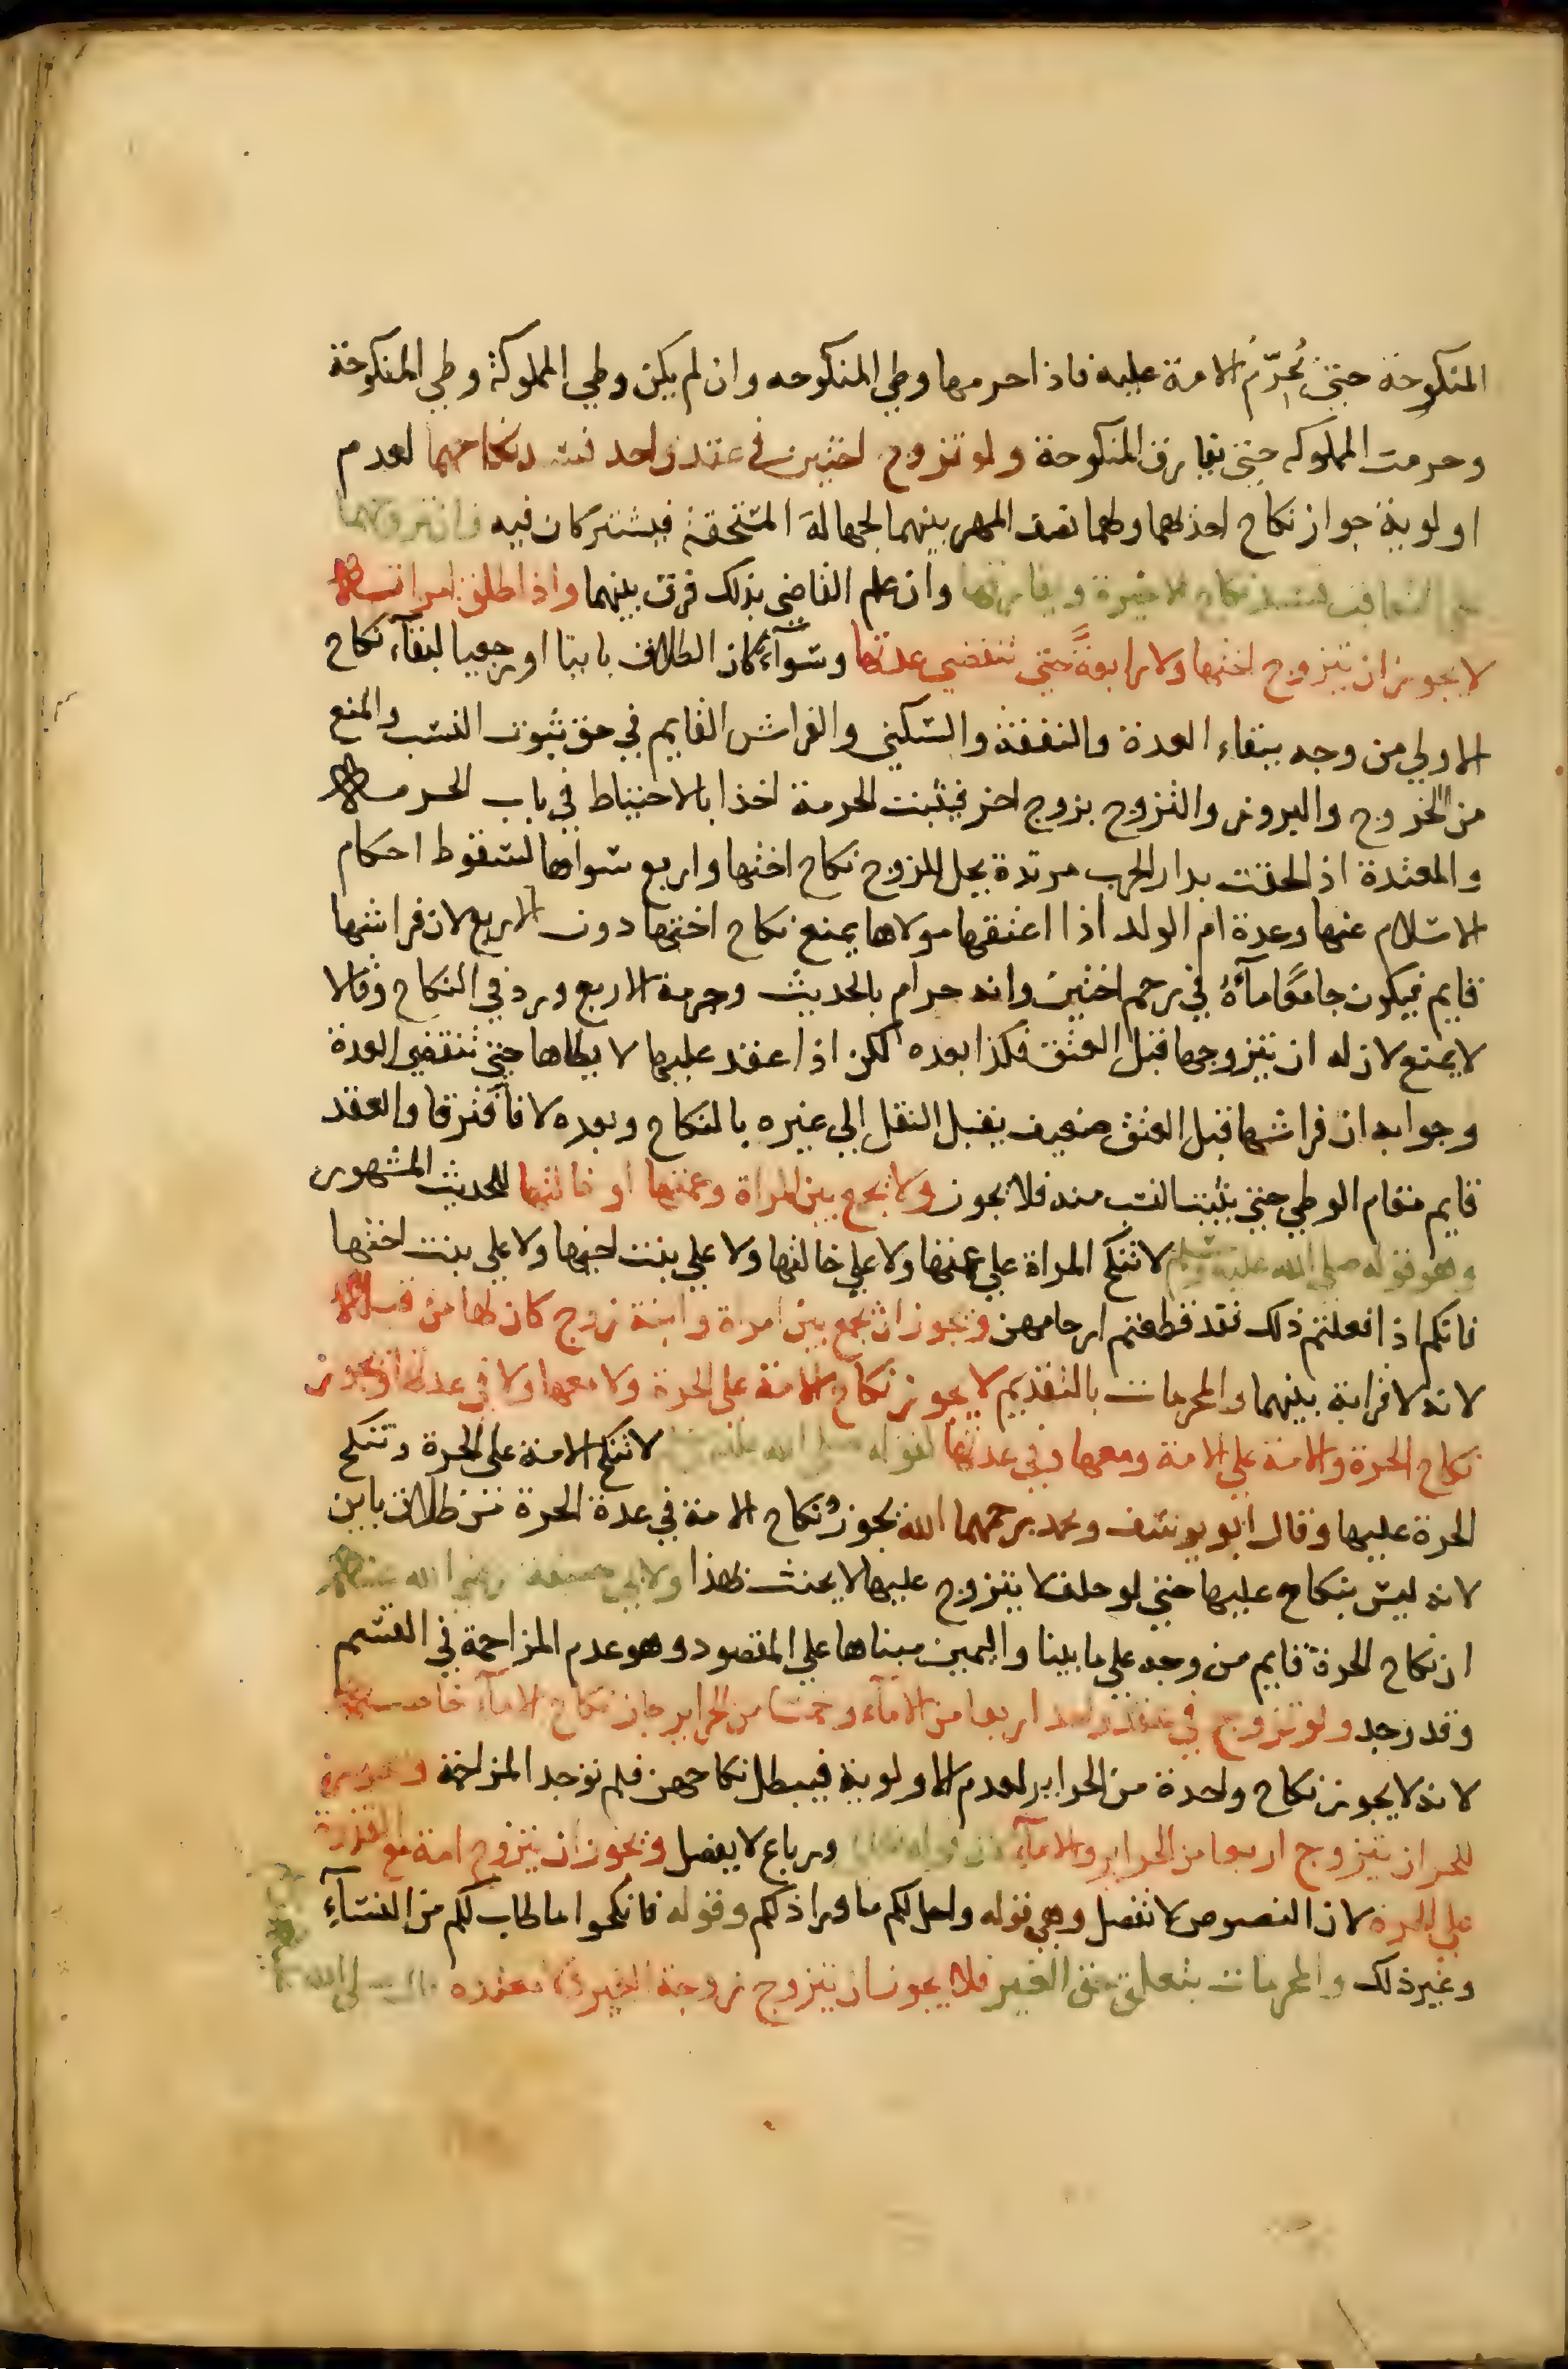 المنكوحة حتى يُحرّمُ الامة عليه فاذا حرمها وطي المنكوحه وان لم يكن وطي المملوكة وطي المنكوحة
وحرمت المملوكه حتى يفارق المنكوحة ولو تزوج اختين في عقد واحد فسد نكاحهما لعدم
اولوية جواز نكاح احداهما ولهما نصف المهر بينهما لجهالة المستحقة فيشتركان فيه فان تزوجهما
على التعاقب فسد نكاح الاخيرة ويفارقها وان علم القاضي بذلك فرق بينهما واذا طلق امراته
لا يجوز ان يتزوج اختها ولا رابعةً حتى تنقضي عدتها وسوآء كان الطلاق باينا او رجعيا لبقآء نكاح
الاولي من وجه ببقاء العدة والنفقة والسكني والفراش القايم في حق ثبوت النسب والمنع
من الخروج والبروز والتزوج بزوج اخر فيثبت الحرمة اخذا بالاحتياط في باب الحرمة
والمعتدة اذا لحقت بدار الحرب مرتدة يحل للزوج نكاح اختها واربع سواها لسقوط احكام
الاسلام عنها وعدة ام الولد اذا اعتقها مولاها يمنع نكاح اختها دون الاربع لان فراشها
قايم فيكون جامعًا مآءهُ في رحم اختين وانه حرام بالحديث وحرمة الاربع ورد في النكاح وقالا
لا يمنع لان له ان يتزوجها قبل العتق فكذا بعده لكن اذا عقد عليها لا يطاها حتى تنقضي العدة
وجوابه ان فراشها قبل العتق ضعيف يقبل النقل إلي غيره بالنكاح وبعده لا فآفترقا والعقد
قايم مقام الوطي حتى يثبت النسب منه فلا يجوز ولا يجمع بين المراة وعمتها او خالتها للحديث المشهور
وهو قوله صلي الله عليه وسلم لا تنكح المراة علي عمتها ولا علي خالتها ولا علي بنت اخيها ولا علي بنت اختها
فانكم اذا فعلتم ذلك فقد قطعتم ارحامهن ويجوز ان يجمع بين امراة وابنة زوج كان لها من قبل
لانه لا قرابة بينهما والمحرمات بالتقديم لا يجوز نكاح الامة علي الحرة ولا معها ولا في عدتها ويجوز
نكاح الحرة والامة علي الامة ومعها وفي عدتها لقوله صلى الله عليه وسلم لا تنكح الامة علي الحرة وتنكح
الحرة عليها وقال ابو يوسف ومحمد رحمهما الله يجوز نكاح الامة في عدة الحرة من طلاق باين
لانه ليس بنكاح عليها حتى لو حلف لا يتزوج عليها لا يحنث بهذا ولابي حنيفة رضي الله عنه
ان نكاح الحرة قايم من وجه علي ما بينا واليمين مبناها علي المقصود وهو عدم المزاحمة في القسم
وقد وجد ولو تزوج في عقد واحد اربعا من الامآء وخمسا من الحراير جاز نكاح الامآء خاصة
لانه لا يجوز نكاح واحدة من الحراير لعدم الاولوية فيبطل نكاحهن فلم توجد المزاحمة ويجوز
للحر ان يتزوج اربعا من الحراير والامآء لان قوله تعالى ورباع لا يفصل ويجوز ان يتزوج امة مع القدرة
علي الحرة لان النصوص لا تفصل وهي قوله واحل لكم ما وراء ذلكم وقوله فانكحوا ما طاب لكم من النسآءِ
وغير ذلك والمحرمات بتعلق حق الغير فلا يجوز ان يتزوج زوجة الغير ومعتدته